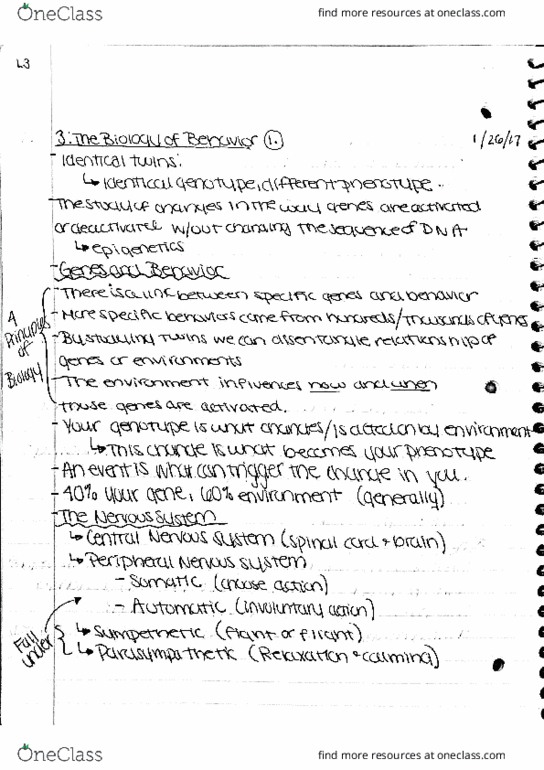 OneClass find more resources at oneclass.com
L3
3: The Biology of Behavior (1.) 1/26/17
- Identical twins:
↳ identical genotype, different phenotype.
The study of changes in the way genes are activated
or deactivated w/out changing the sequence of DNA
↳ epigenetics
- Genes and Behavior
4 Principles of Biology
- There is a link between specific genes and behavior
- More specific behaviors come from hundreds/thousands of genes
- By studying twins we can disentangle relationship of
genes or environments
- The environment influences how and when
those genes are activated.
- Your genotype is what changes/is acted on by environment
↳ This change is what becomes your phenotype
- An event is what can trigger the change in you.
- 40% your gene, 60% environment (generally)
- The Nervous System
↳ Central Nervous System (spinal cord + brain)
↳ Peripheral Nervous System
- Somatic (choose action)
- Automatic (involuntary action)
Fall under
↳ Sympethetic (flight or fight)
↳ Parasympathetic (Relaxation + calming)
OneClass find more resources at oneclass.com